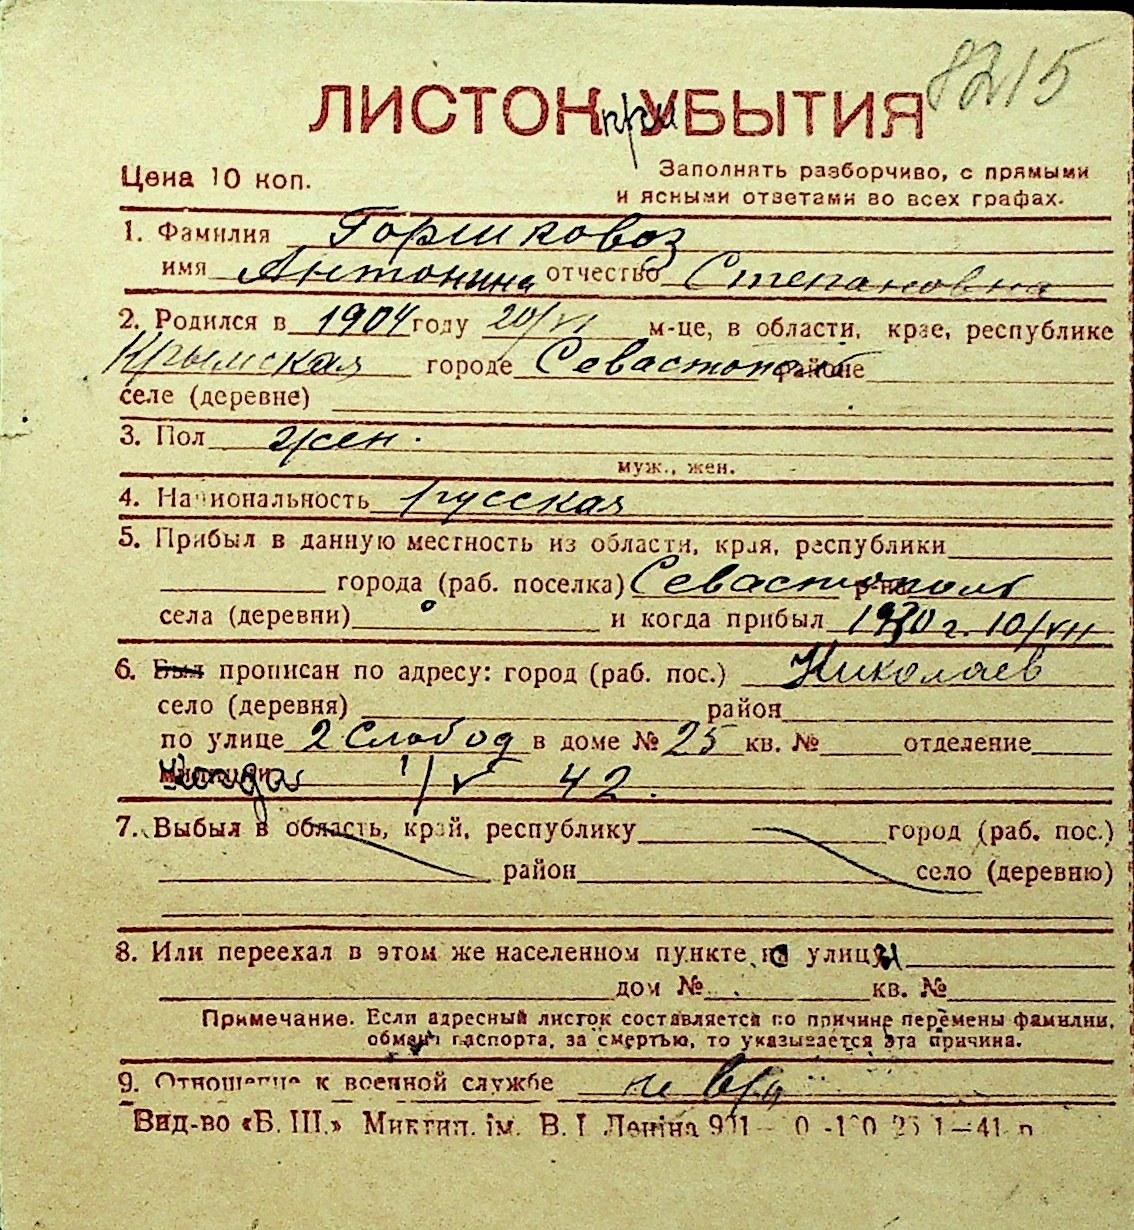 8215
ЛИСТОК при УБЫТИЯ
Цена 10 коп.
Заполнять разборчиво, с прямыми
и ясными ответами во всех графах.
1. Фамилия Горшкова
имя Антонина отчество Степановна
2. Родился в 1904 году 20/VI м-це, в области, крае, республике
Крымская городе Севастополь районе
селе (деревне)
3. Пол жен.
муж., жен.
4. Национальность русская
5. Прибыл в данную местность из области, края, республики
города (раб. поселка) Севастополь р-на
села (деревни) и когда прибыл 1930 г. 10/VII
6. Был прописан по адресу: город (раб. пос.) Николаев
село (деревня) район
по улице 2 Слобод в доме № 25 кв. № отделение
когда 1/V 42.
7. Выбыл в область, край, республику город (раб. пос.)
район село (деревню)
8. Или переехал в этом же населенном пункте с улицы
дом № кв. №
Примечание. Если адресный листок составляется по причине перемены фамилии,
обмена паспорта, за смертью, то указывается эта причина.
9. Отношение к военной службе не в/о
Вид-во «Б. Ш.» Микгип. ім. В. І Леніна